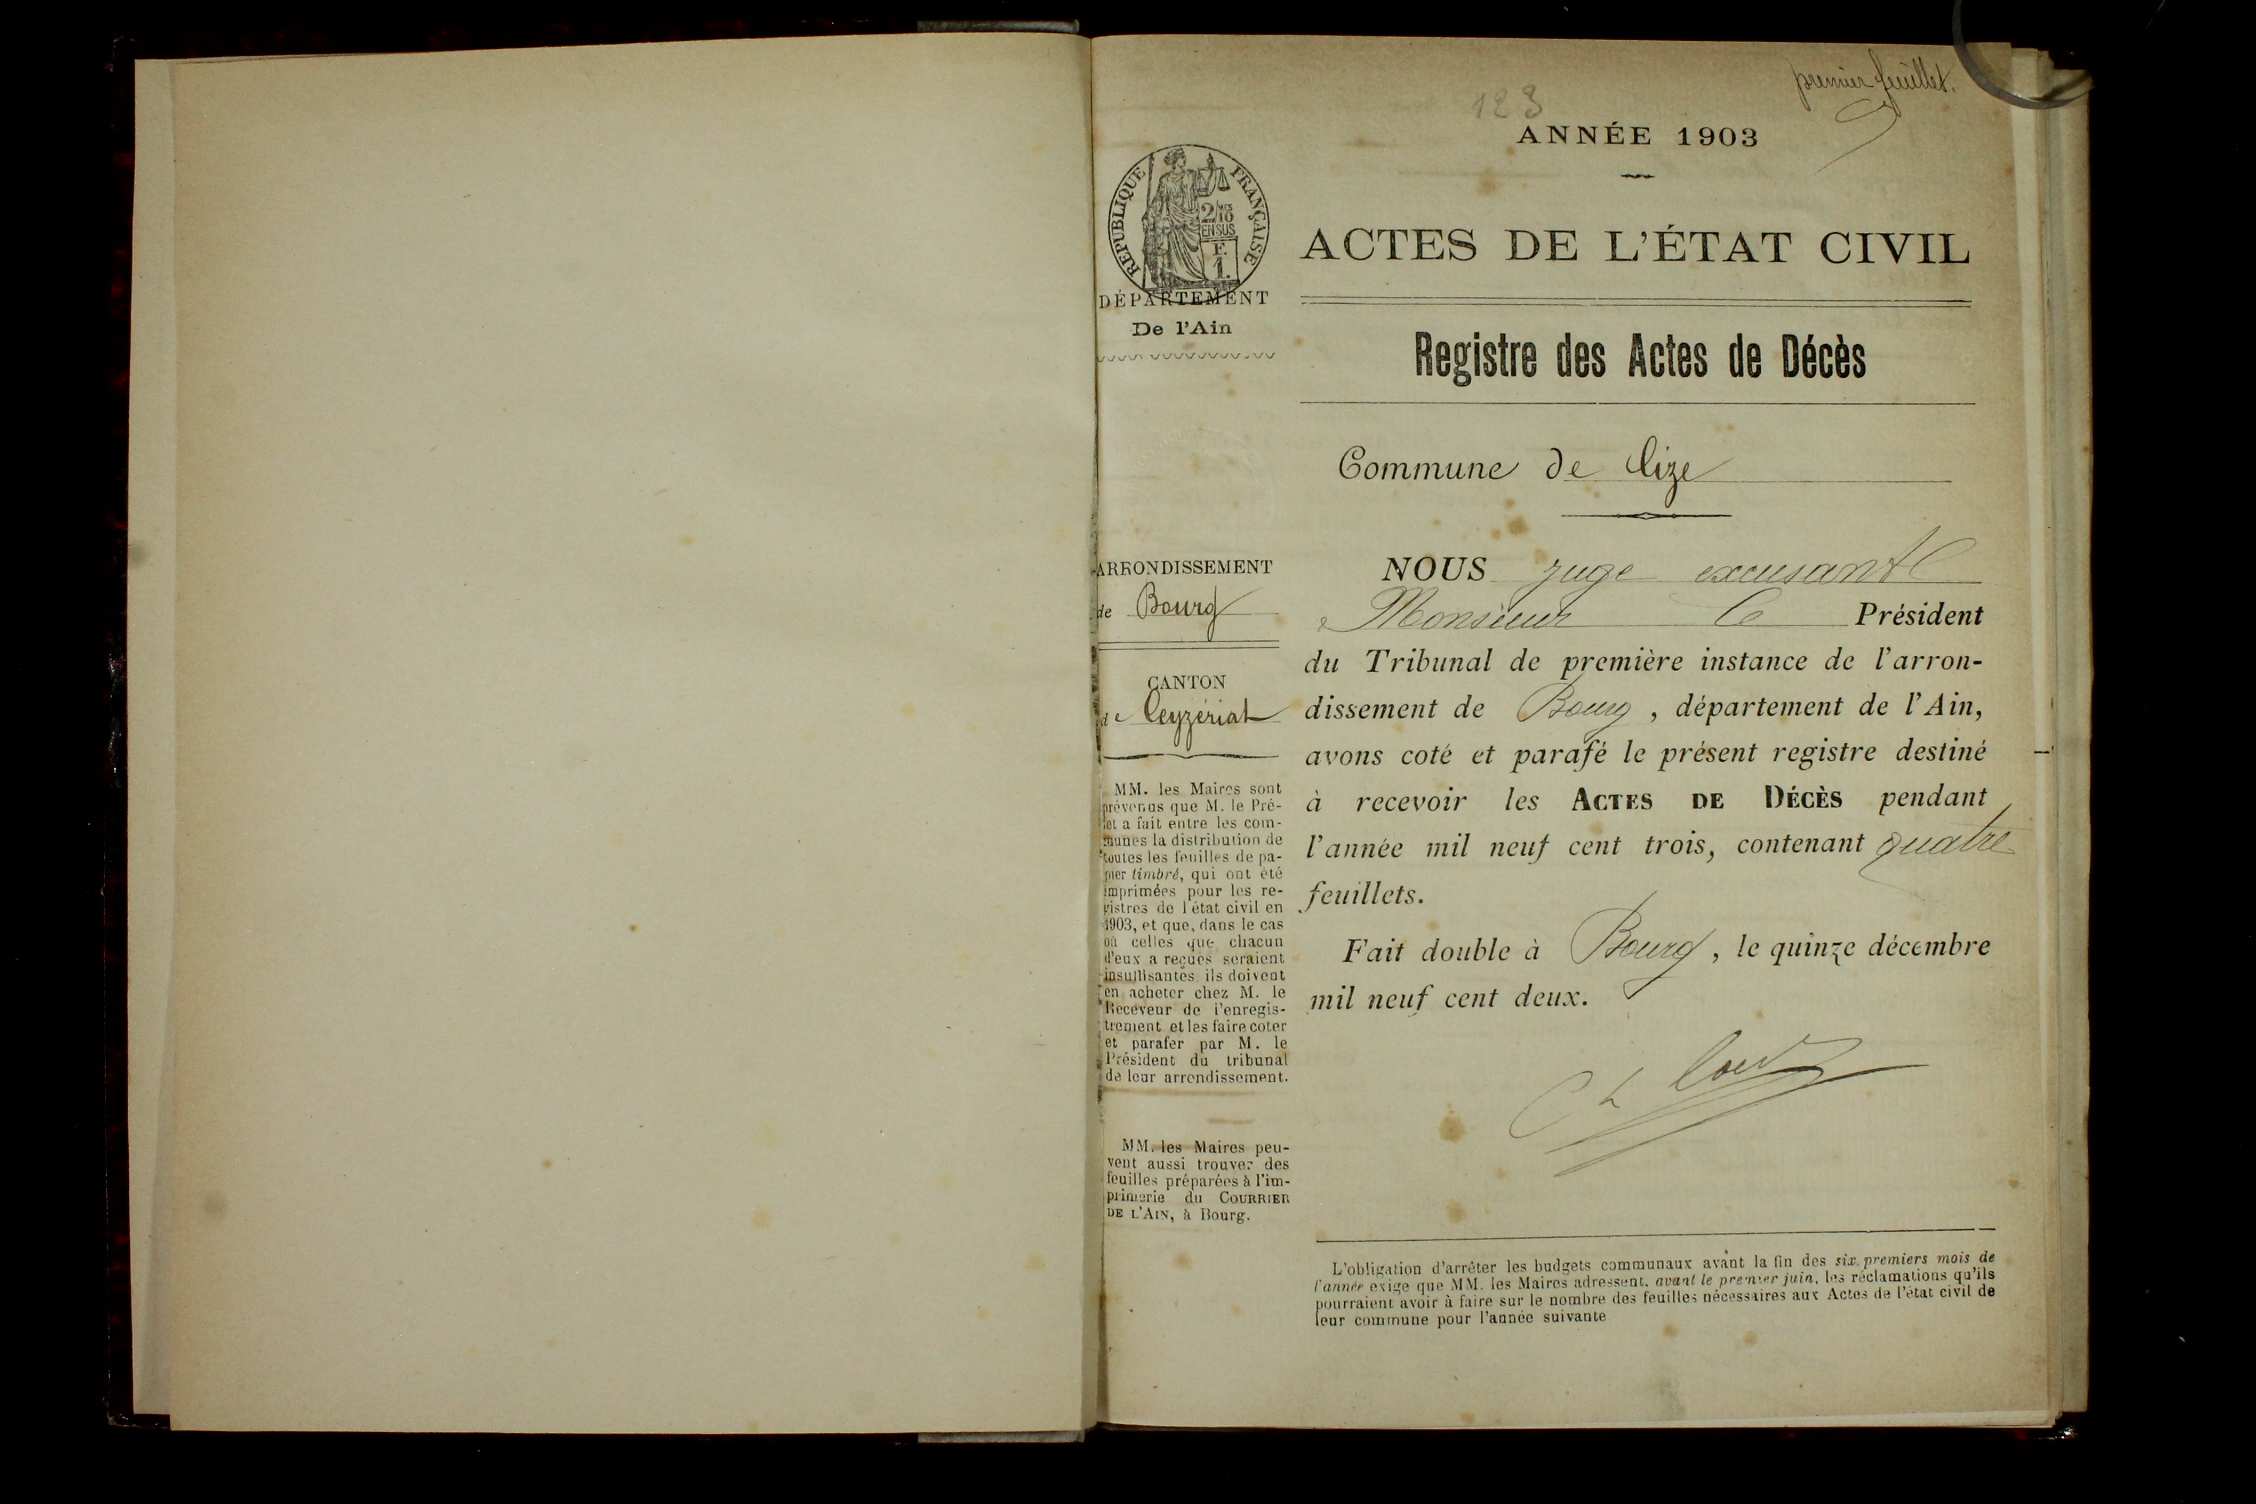 premier feuillet.
123
ANNÉE 1903
RÉPUBLIQUE FRANÇAISE
2/10 MES
EN SUS
F.
1.
DÉPARTEMENT
De l'Ain
ACTES DE L'ÉTAT CIVIL
Registre des Actes de Décès
Commune de Cize
ARRONDISSEMENT
de Bourg
CANTON
de Ceyzériat
MM. les Maires sont
prévenus que M. le Pré-
fet a fait entre les com-
munes la distribution de
toutes les feuilles de pa-
pier timbré, qui ont été
imprimées pour les re-
gistres de l'état civil en
1903, et que, dans le cas
où celles que chacun
d'eux a reçues seraient
insuffisantes ils doivent
en acheter chez M. le
Receveur de l'enregis-
trement et les faire coter
et parafer par M. le
Président du tribunal
de leur arrondissement.
MM. les Maires peu-
vent aussi trouver des
feuilles préparées à l'im-
primerie du COURRIER
DE L'AIN, à Bourg.
NOUS juge excusant
Monsieur le Président
du Tribunal de première instance de l'arron-
dissement de Bourg, département de l'Ain,
avons coté et parafé le présent registre destiné
à recevoir les ACTES DE DÉCÈS pendant
l'année mil neuf cent trois, contenant quatre
feuillets.
Fait double à Bourg, le quinze décembre
mil neuf cent deux.
L'obligation d'arrêter les budgets communaux avant la fin des six premiers mois de
l'année exige que MM. les Maires adressent, avant le premier juin, les réclamations qu'ils
pourraient avoir à faire sur le nombre des feuilles nécessaires aux Actes de l'état civil de
leur commune pour l'année suivante